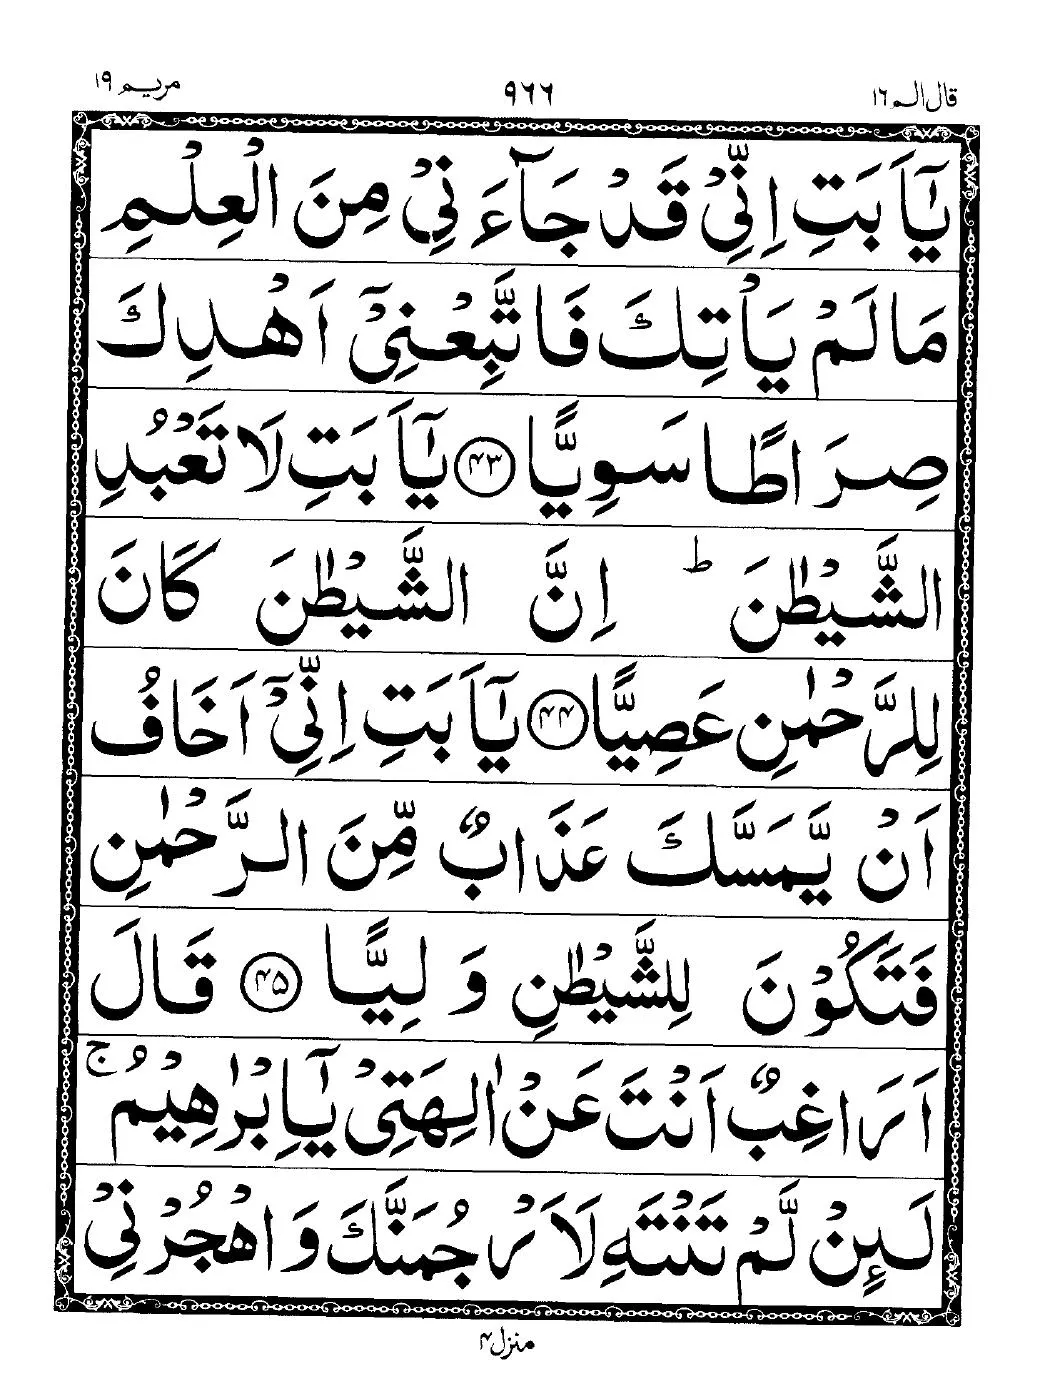 قال الم ١٦ ٩٦٦ مريم ١٩
يٰۤاَبَتِ اِنِّيْ قَدْ جَآءَنِيْ مِنَ الْعِلْمِ
مَا لَمْ يَاْتِكَ فَاتَّبِعْنِيْۤ اَهْدِكَ
صِرَاطًا سَوِيًّا ﴿۴۳﴾ يٰۤاَبَتِ لَا تَعْبُدِ
الشَّيْطٰنَ ؕ اِنَّ الشَّيْطٰنَ كَانَ
لِلرَّحْمٰنِ عَصِيًّا ﴿۴۴﴾ يٰۤاَبَتِ اِنِّيْۤ اَخَافُ
اَنْ يَّمَسَّكَ عَذَابٌ مِّنَ الرَّحْمٰنِ
فَتَكُوْنَ لِلشَّيْطٰنِ وَلِيًّا ﴿۴۵﴾ قَالَ
اَرَاغِبٌ اَنْتَ عَنْ اٰلِهَتِيْ يٰۤاِبْرٰهِيْمُ ۚ
لَئِنْ لَّمْ تَنْتَهِ لَاَرْجُمَنَّكَ وَاهْجُرْنِيْ
منزل ۴